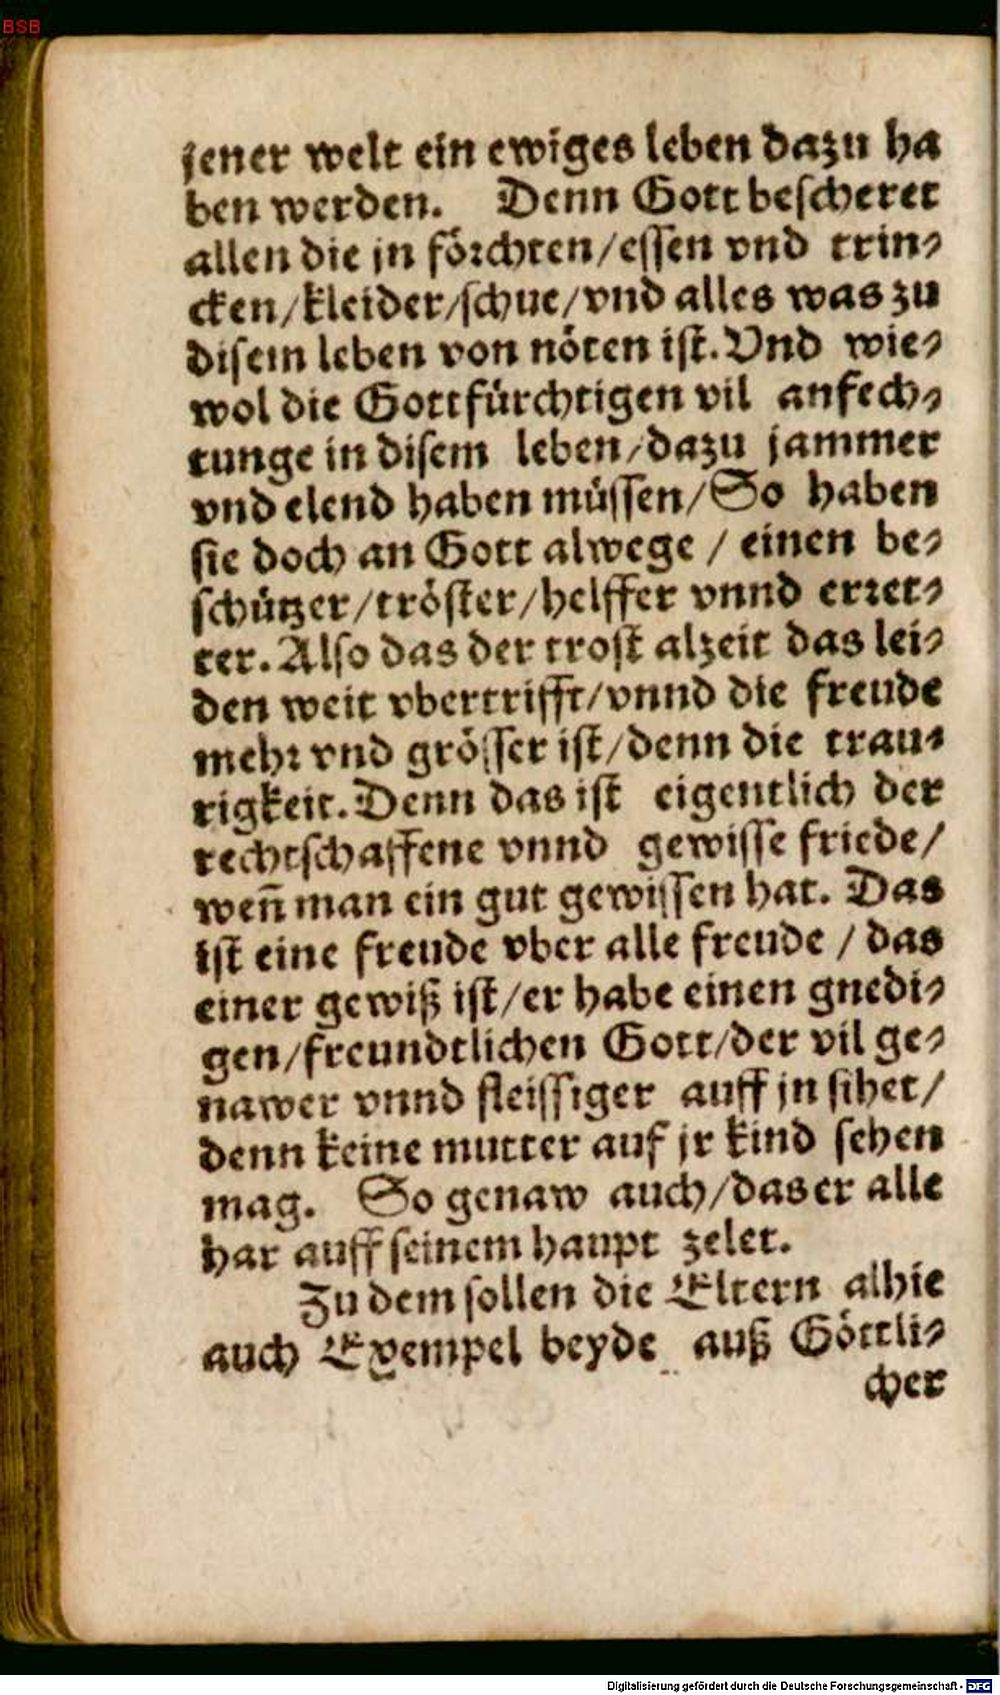 BSB
jener welt ein ewiges leben dazu ha
ben werden. Denn Gott bescheret
allen die jn förchten/essen vnd trin-
cken/kleider/schue/vnd alles was zu
disem leben von nöten ist. Vnd wie-
wol die Gottfürchtigen vil anfech-
tunge in disem leben/dazu jammer
vnd elend haben müssen/So haben
sie doch an Gott alwege / einen be-
schützer/tröster/helffer vnnd erret-
ter. Also das der trost alzeit das lei-
den weit vbertrifft/vnnd die freude
mehr vnd grösser ist/denn die trau-
rigkeit. Denn das ist eigentlich der
rechtschaffene vnnd gewisse friede/
weñ man ein gut gewissen hat. Das
ist eine freude vber alle freude / das
einer gewiß ist/er habe einen gnedi-
gen/freundtlichen Gott/der vil ge-
nawer vnnd fleissiger auff jn sihet/
denn keine mutter auf jr kind sehen
mag. So genaw auch/das er alle
har auff seinem haupt zelet.
Zu dem sollen die Eltern alhie
auch Exempel beyde auß Göttli-
cher
Digitalisierung gefördert durch die Deutsche Forschungsgemeinschaft - DFG